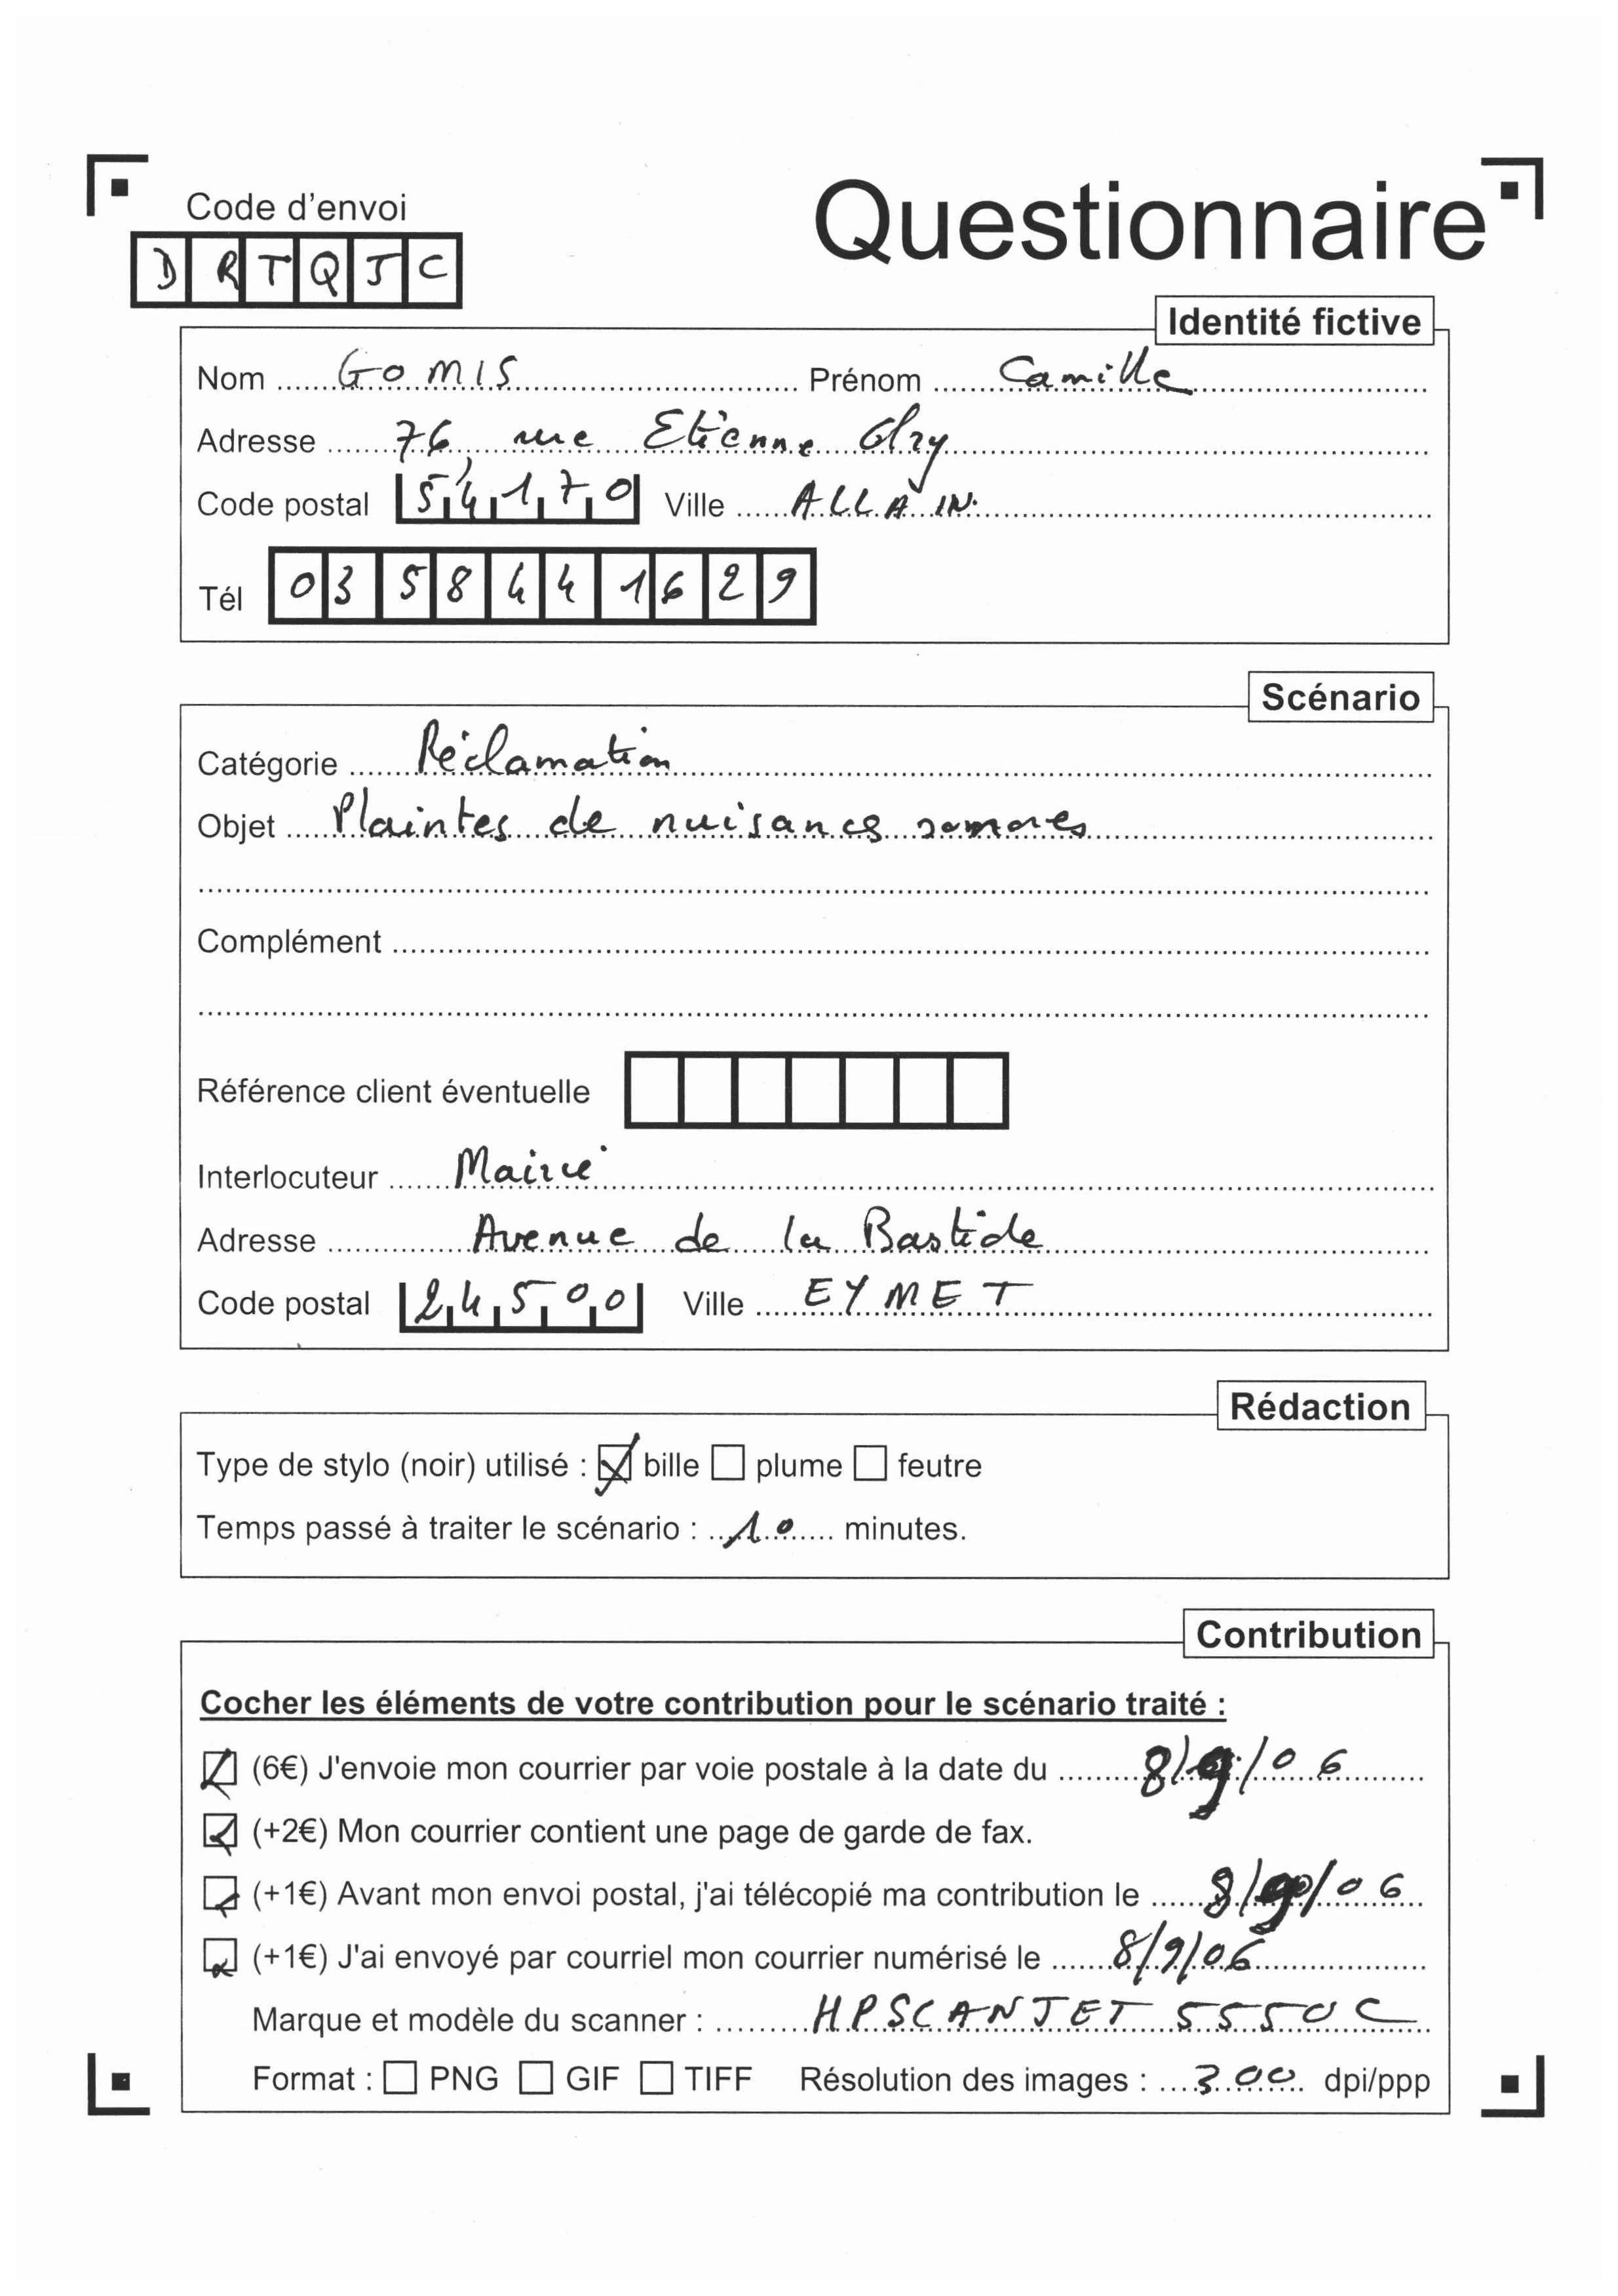 Code d'envoi
Questionnaire
D R T Q J C
Identité fictive
Nom GOMIS Prénom Camille
Adresse 76 rue Etienne Olry
Code postal 54170 Ville ALLAIN
Tél 0358441629
Scénario
Catégorie Réclamation
Objet Plaintes de nuisances sonores
Complément
Référence client éventuelle
Interlocuteur Mairie
Adresse Avenue de la Bastide
Code postal 24500 Ville EYMET
Rédaction
Type de stylo (noir) utilisé : bille plume feutre
Temps passé à traiter le scénario : 10 minutes.
Contribution
Cocher les éléments de votre contribution pour le scénario traité :
(6€) J'envoie mon courrier par voie postale à la date du 8/9/06
(+2€) Mon courrier contient une page de garde de fax.
(+1€) Avant mon envoi postal, j'ai télécopié ma contribution le 8/9/06
(+1€) J'ai envoyé par courriel mon courrier numérisé le 8/9/06
Marque et modèle du scanner : HPSCANJET 5550C
Format : PNG GIF TIFF Résolution des images : 300 dpi/ppp